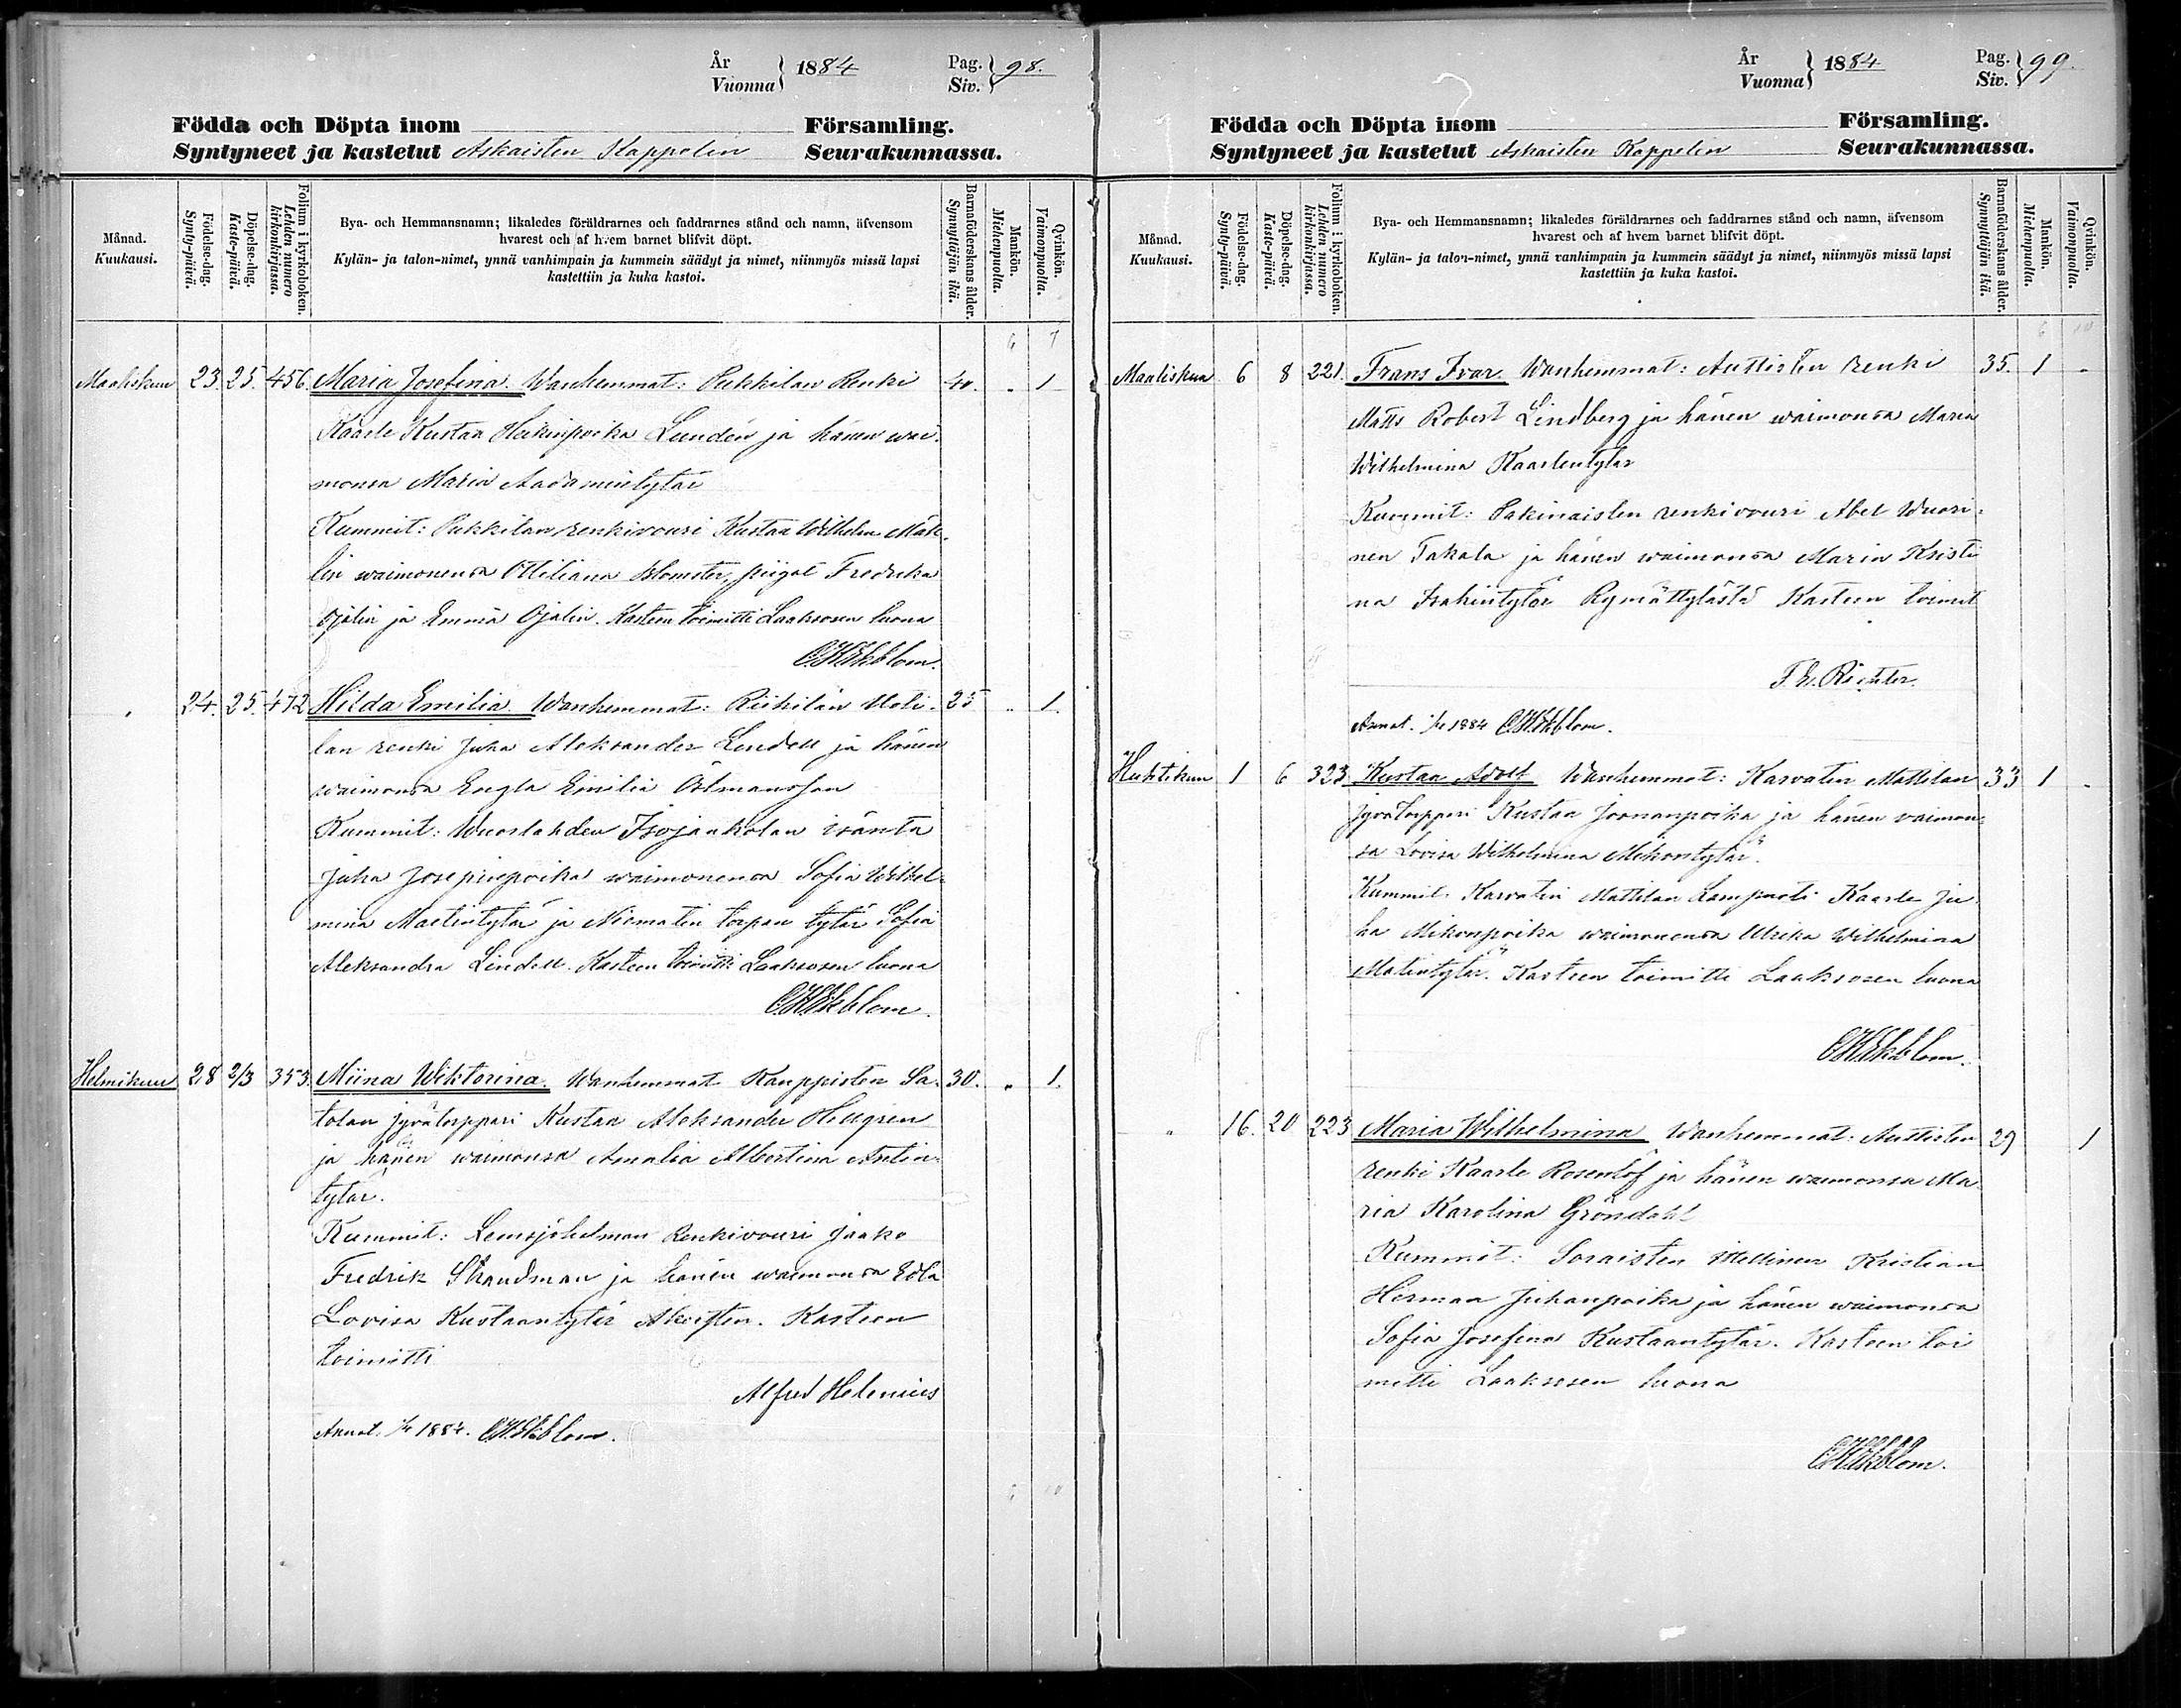 År
Vuonna } 1884
Pag.
Siv. } 98.
Födda och Döpta inom Församling.
Syntyneet ja kastetut Askaisten Kappelin Seurakunnassa.
Månad.
Kuukausi.
Födelse-dag.
Synty-päivä.
Döpelse-dag.
Kaste-päivä.
Folium i kyrkoboken.
Lehden numero
kirkonkirjassa.
Bya- och Hemmansnamn; likaledes föräldrarnes och faddrarnes stånd och namn, äfvensom
hvarest och af hvem barnet blifvit döpt.
Kylän- ja talon-nimet, ynnä vanhimpain ja kummein säädyt ja nimet, niinmyös missä lapsi
kastettiin ja kuka kastoi.
Barnaföderskans ålder.
Synnyttäjän ikä.
Mankön.
Miehenpuolta.
Qvinkön.
Vaimonpuolta.
6 7
Maaliskuu 23. 25. 456 Maria Josefina. Wanhemmat: Pukkilan Renki 40. " 1
Kaarle Kustaa Heikinpoika Lundén ja hänen wai-
monsa Maria Aadamintytär
Kummit: Pukkilan renkivouri Kustaa Wilhelm
lin waimonensa Ottiliana Blomster, piigat Fredrika
Ojalin ja Emma Ojalin. Kasteen toimitti Laaksosen luona
C.H.Ekblom.
" 24. 25. 472 Hilda Emilia. Wanhemmat: Riikilän Uoti- 25 " 1.
lan renki Juha Aleksander Lindell ja hänen
waimonsa Engla Emilia Östmansson
Kummit: Wuorlahden Isojaakolan isäntä
Juha Josepinpoika waimonensa Sofia Wilhel-
mina Martintytär ja Niematin torpan tytär Sofia
Aleksandra Lindell. Kasteen toimitti Laaksosen luona
C.H.Ekblom.
Helmikuu 28 2/3 353. Miina Wiktorina. Wanhemmat Kauppisten Sa- 30. " 1.
tolan jyvätorppari Kustaa Aleksander Hellgren
ja hänen waimonsa Amalia Albertina Antin-
tytär.
Kummit: Lemsjöholman Renkivouri Jaako
Fredrik Strandman ja hänen waimonsa Edla
Lovisa Kustaantytär Kasteen
toimitti
Alfred Helenius
Annot. 1884. C.H.Ekblom.
6 10
År
Vuonna } 1884
Pag.
Siv. } 99.
Födda och Döpta inom Församling.
Syntyneet ja kastetut Askaisten Kappelin Seurakunnassa.
Månad.
Kuukausi.
Födelse-dag.
Synty-päivä.
Döpelse-dag.
Kaste-päivä.
Folium i kyrkoboken.
Lehden numero
kirkonkirjassa.
Bya- och Hemmansnamn; likaledes föräldrarnes och faddrarnes stånd och namn, äfvensom
hvarest och af hvem barnet blifvit döpt.
Kylän- ja talon-nimet, ynnä vanhimpain ja kummein säädyt ja nimet, niinmyös missä lapsi
kastettiin ja kuka kastoi.
Barnaföderskans ålder.
Synnyttäjän ikä.
Mankön.
Miehenpuolta.
Qvinkön.
Vaimonpuolta.
6 10
Maaliskuu 6 8 221. Frans Ivar. Wanhemmat: Auttisten renki 35. 1 "
Matts Robert Lindberg ja hänen waimonsa Maria
Wilhelmina Kaarlentytär
Kummit: Pakinaisten renkivouri Abel Wuori-
nen Takala ja hänen waimonsa Maria Kristi
na Isakintytär Rymättylästä Kasteen toimit
F. E. Richter.
Annot. 1884 C.H.Ekblom.
Huhtikuu 1 6 323 Kustaa Adolf Wanhemmat: Karvatin Mattilan 33 1 "
jyvätorppari Kustaa Joonanpoika ja hänen vaimon-
sa Lovisa Wilhelmina Mikontytär.
Kummit. Karvatin Mattilan Lampuoti Kaarle Ju-
ha Mikonpoika waimonensa Ulrika Wilhelmina
Matintytär. Kasteen toimitti Laaksosen luona
C.H.Ekblom.
" 16. 20 223 Maria Wilhelmina Wanhemmat: Auttisten 29 1
renki Kaarle Rosenlöf ja hänen waimonsa Ma-
ria Karolina Gröndahl
Kummit: Soraisten itsellinen Kristian
Herman Juhanpoika ja hänen waimonsa
Sofia Josefina Kustaantytär. Kasteen toi
mitti Laaksosen luona
C.H.Ekblom.